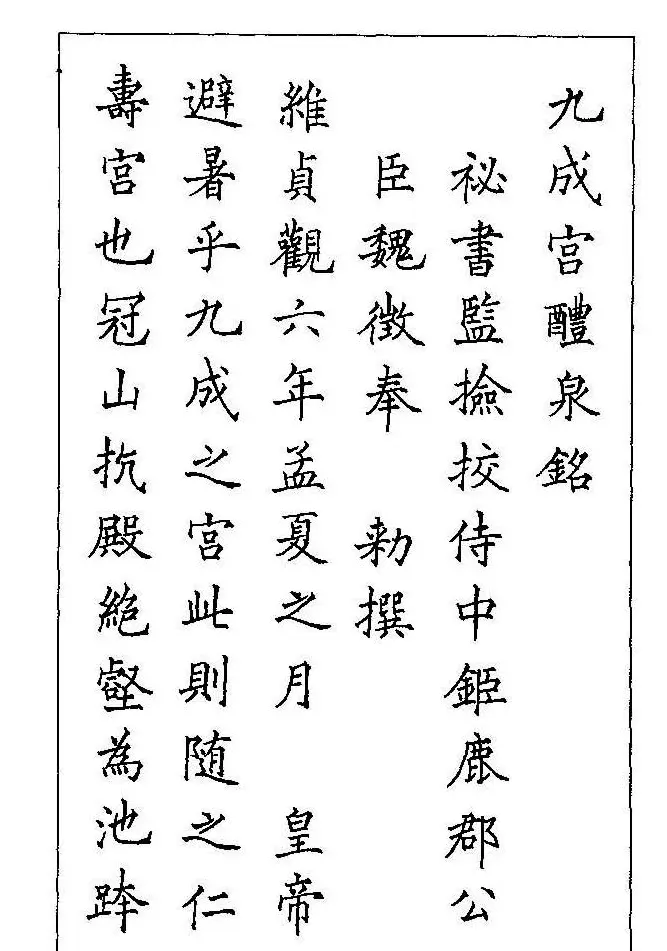 九成宮醴泉銘
祕書監撿挍侍中鉅鹿郡公
臣魏徵奉 勅撰
維貞觀六年孟夏之月 皇帝
避暑乎九成之宮此則随之仁
壽宮也冠山抗殿絶壑為池跨